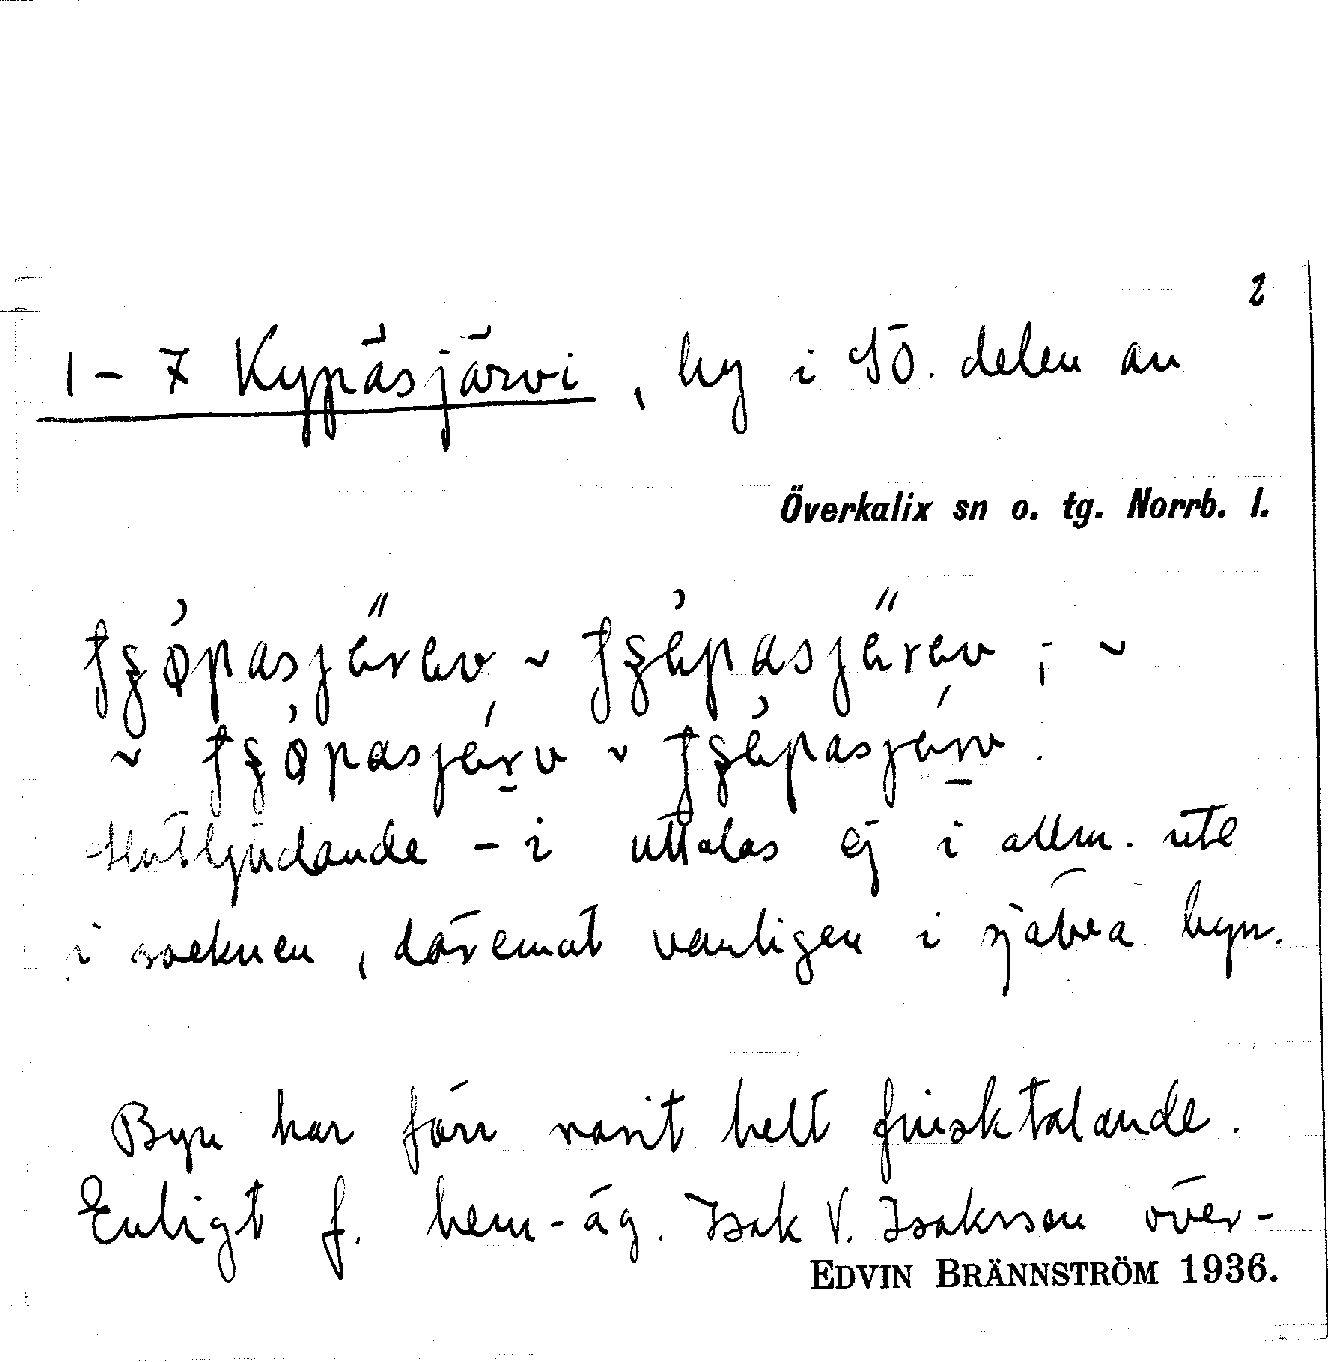 2
1 - 7 Kypäsjärvi, by i SÖ. delen av
Överkalix sn o. tg. Norrb. l.
Slutljudande -i uttalas ej i allm. ute
i socknen, däremot vanligen i själva byn.
Byn har förr varit helt finsktalande.
Enligt f. hem-äg. Isak V. Isaksson över-
EDVIN BRÄNNSTRÖM 1936.